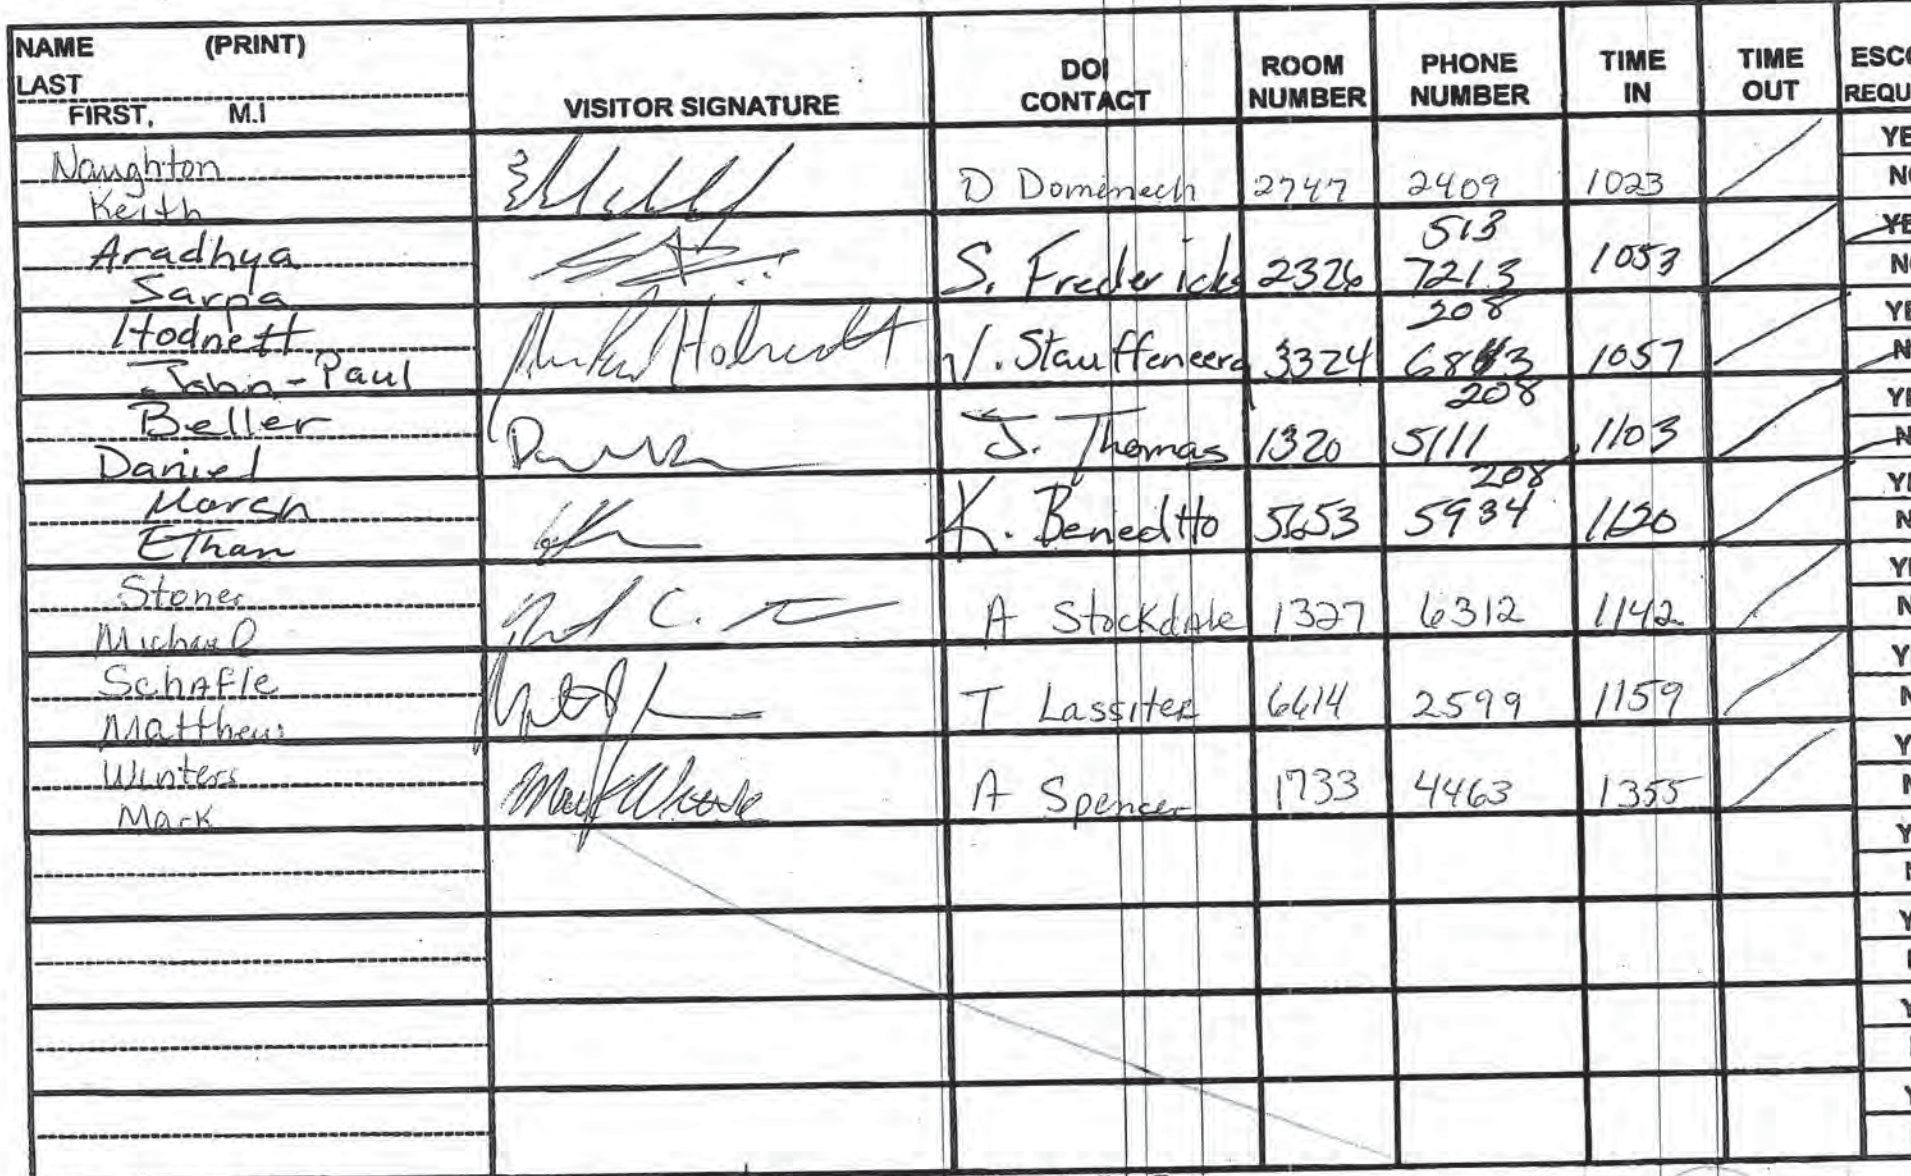 NAME (PRINT)
LAST
FIRST, M.I
VISITOR SIGNATURE
DOI
CONTACT
ROOM
NUMBER
PHONE
NUMBER
TIME
IN
TIME
OUT
ESCO
REQU
Naughton
Keith
D Domenech 2747 2409 1023
YE
NO
Aradhya
Sarpa
S. Fredericks 2326 513
7213 1053
YE
NO
Hodnett
John-Paul
V. Stauffeneerg 3324 208
6843 1057
YE
N
Beller
Daniel
J. Thomas 1320 208
5111 1103
YE
N
Marsh
Ethan
K. Beneditto 5653 208
5934 1120
YE
N
Stoner
Michael
A Stockdale 1327 6312 1142
YE
N
Schafle
Matthew
T Lassiter 6614 2599 1159
Y
N
Winters
Mark
A Spencer 1733 4463 1355
Y
N
Y
N
Y
Y
Y